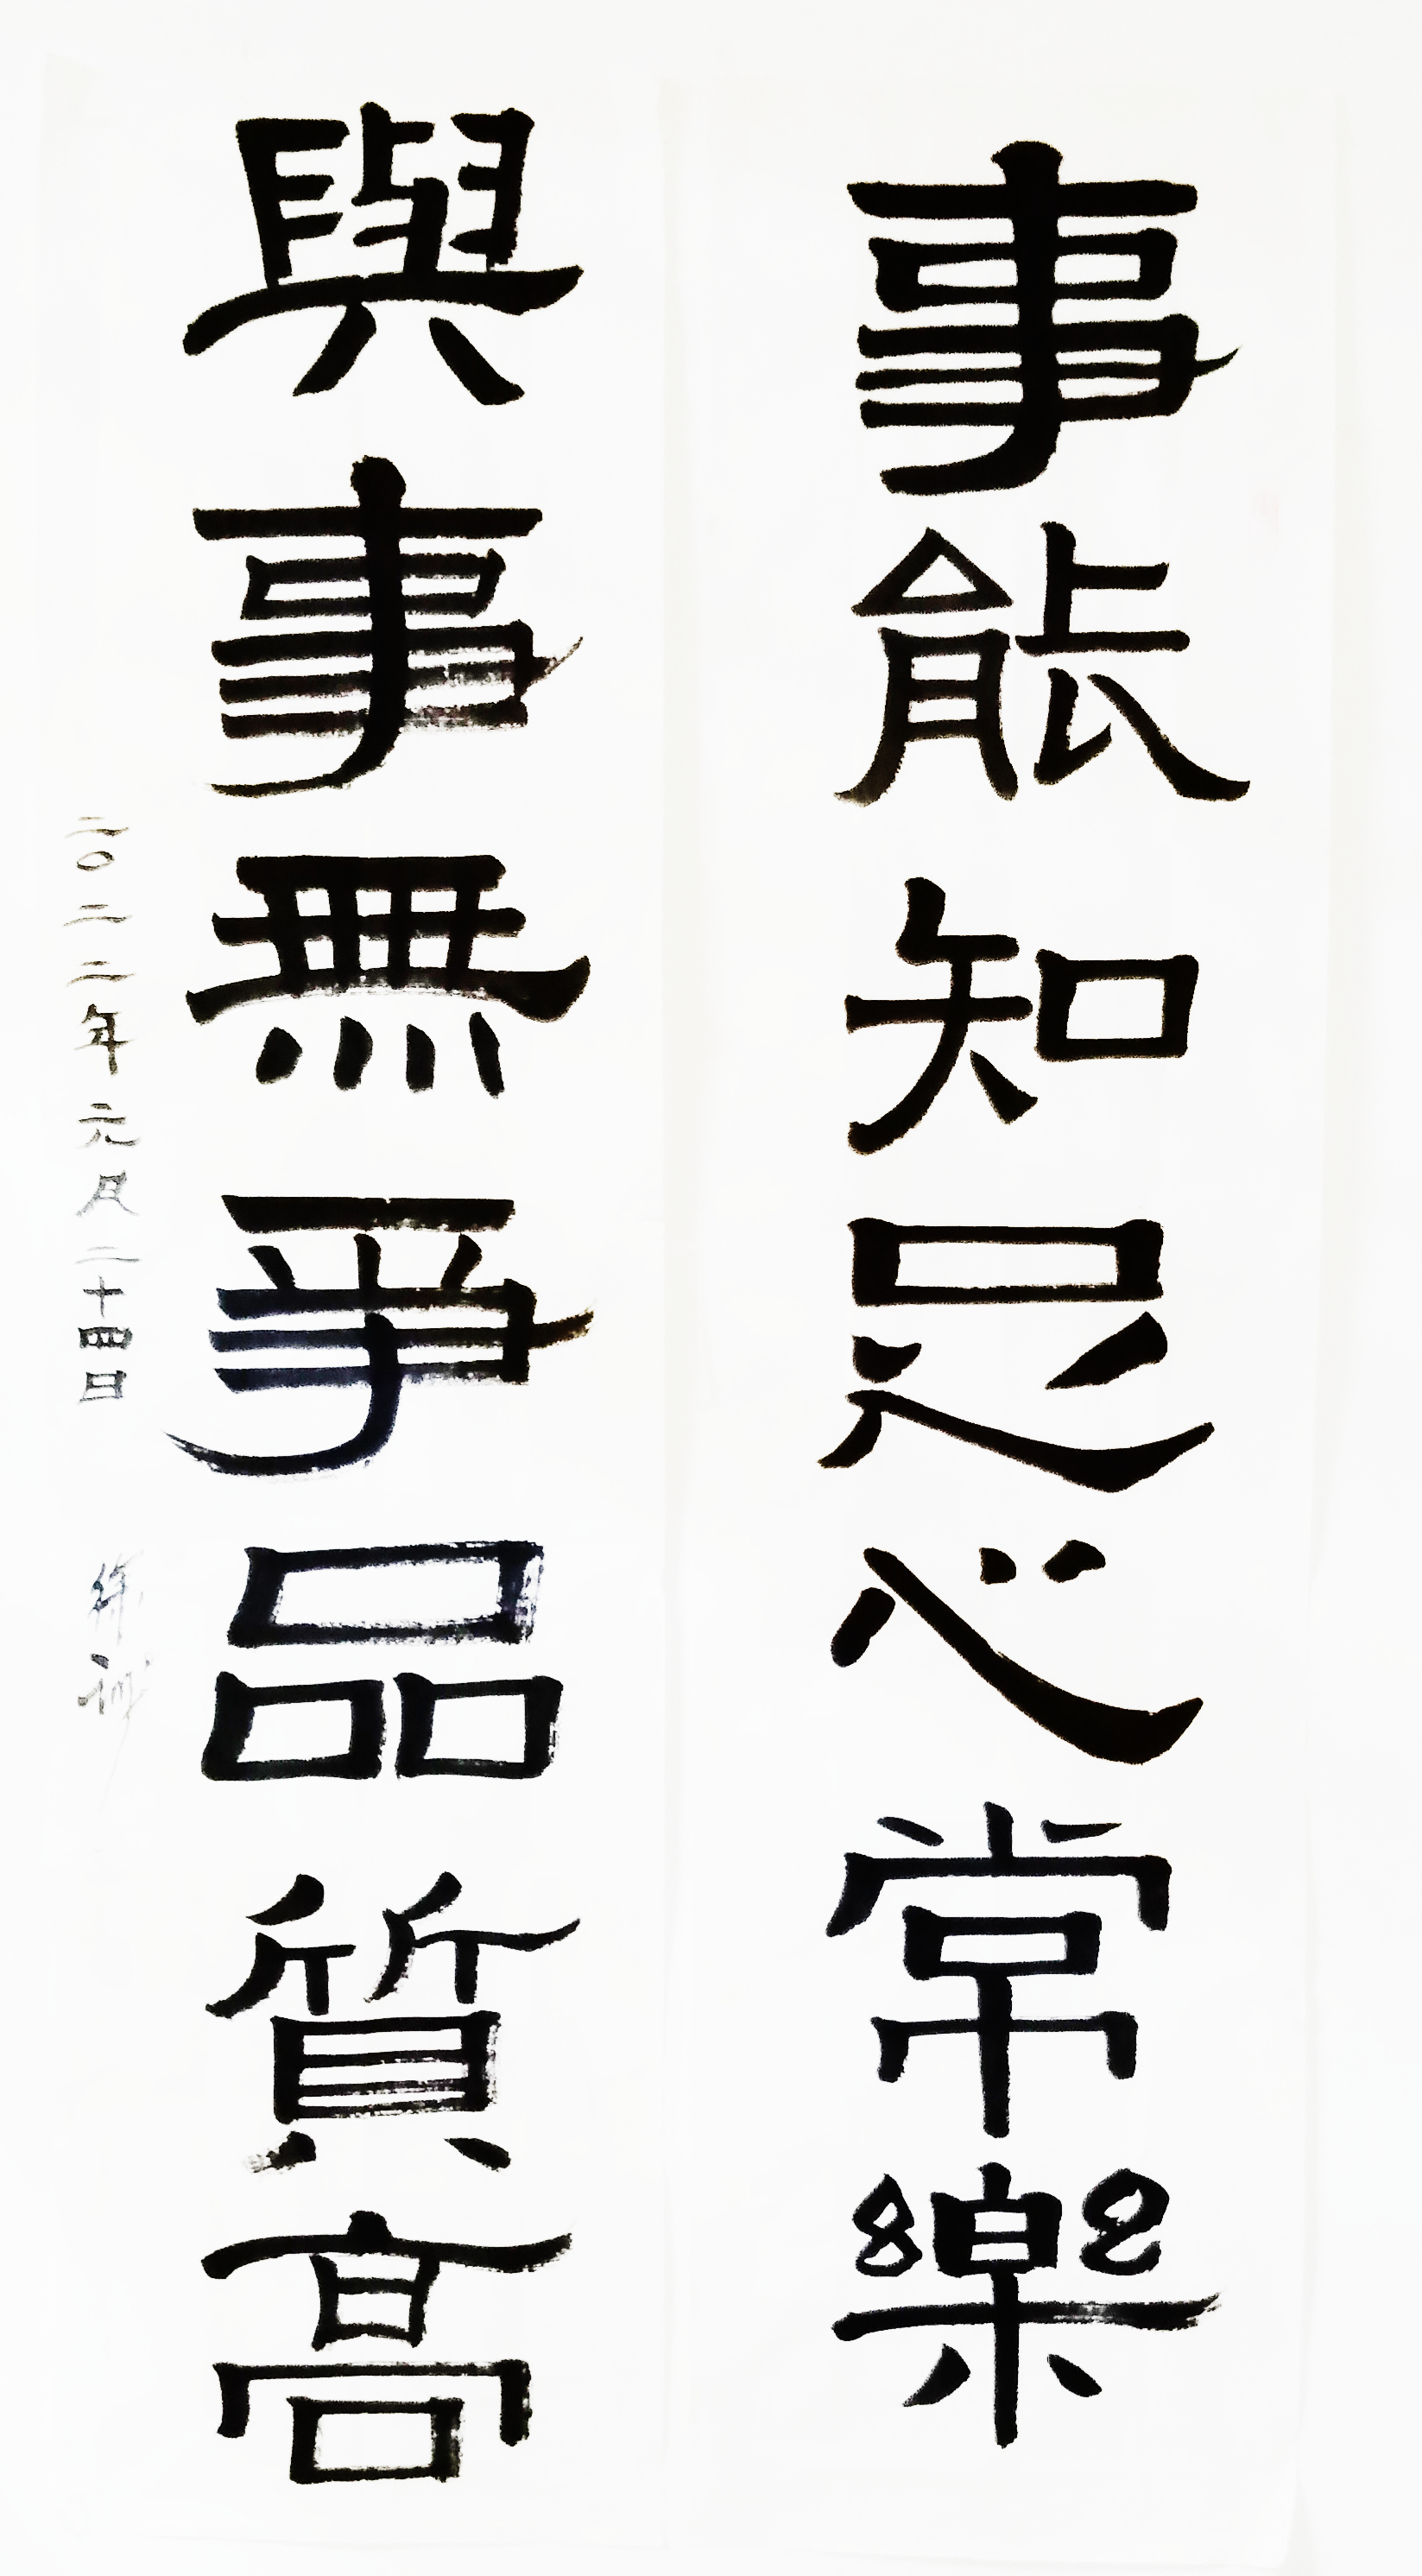 事能知足心常樂
與事無爭品質高
二〇二二年元月二十四日
徐